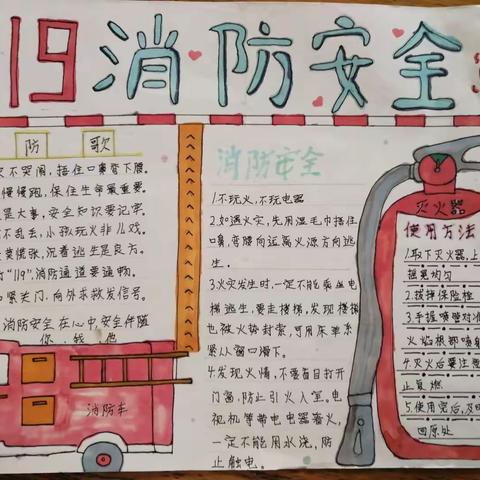 119消防安全
防 歌
不哭闹,捂住口鼻弯下腰。
慢慢跑,保住生命最重要。
是大事,安全知识要记牢。
不乱丢,小孩玩火非儿戏。
莫慌张,沉着逃生是良方。
"119",消防通道要通畅。
紧关门,向外求救发信号。
消防安全在心中,安全伴随
你、我、他
消防车
消防安全
1.不玩火,不玩电器
2.如遇火灾,先用湿毛巾捂住
口鼻,弯腰向远离火源方向逃
生.
3.火灾发生时,一定不能乘坐电
梯逃生,要走楼梯,发现楼梯
也被火势封索,可用床单系
紧从窗口滑下。
4.发现火情,不要盲目打开
门窗,防止引火入室,电
视机等带电电器着火,
一定不能用水浇,防
止触电。
灭火器
使用方法
1.取下灭火器,上
摇晃均匀
2.拔掉保险栓
3.手握喷管对准
火焰根部喷射
4.灭火后要注意
止复燃
5.使用完后,及时
回原处